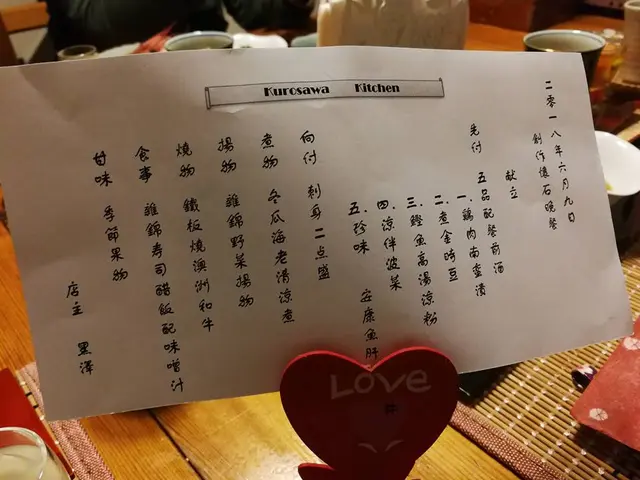 Kurosawa Kitchen
二零一八年六月九日
創作懷石晚餐
献立
先付 五品配餐前酒
一. 鷄肉南蛮漬
二. 煮金時豆
三. 鰹魚高湯涼粉
四. 涼伴菠菜
五. 珍味 安康魚肝
向付 刺身二点盛
煮物 冬瓜海老清涼煮
揚物 雜錦野菜揚物
燒物 鐵板燒澳洲和牛
食事 雜錦寿司醋飯配味噌汁
甘味 季節果物
店主 黑澤
Love